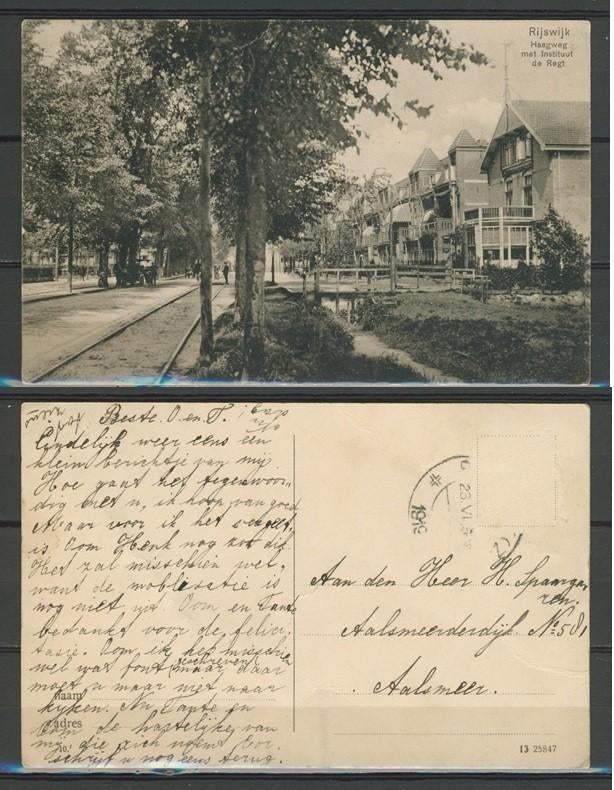 Rijswijk
Haagweg
met Instituut
de Regt
Beste O. en T.
Eindelijk weer eens een
klein berichtje van mij.
Hoe gaat het tegenwoor-
dig met u, ik hoop van goed
Maar voor ik het vergeet.
is Oom Henk nog zoo dik
Het zal misschien wel,
want de moblisatie is
nog niet Oom en Tante
bedankt voor de felici-
tasie. Oom, ik heb misschien
wel wat fout geschreven maar daar
moet u maar niet naar
kijken. Nu Tante en
Oom de hartelijke van
mij die zich noemt Cor.
schrijf u nog eens terug.
naam
adres
1919
23 VI
Aan den Heer H. Spaarga-
ren.
Aalsmeerderdijk No 581
Aalsmeer.
13 25847